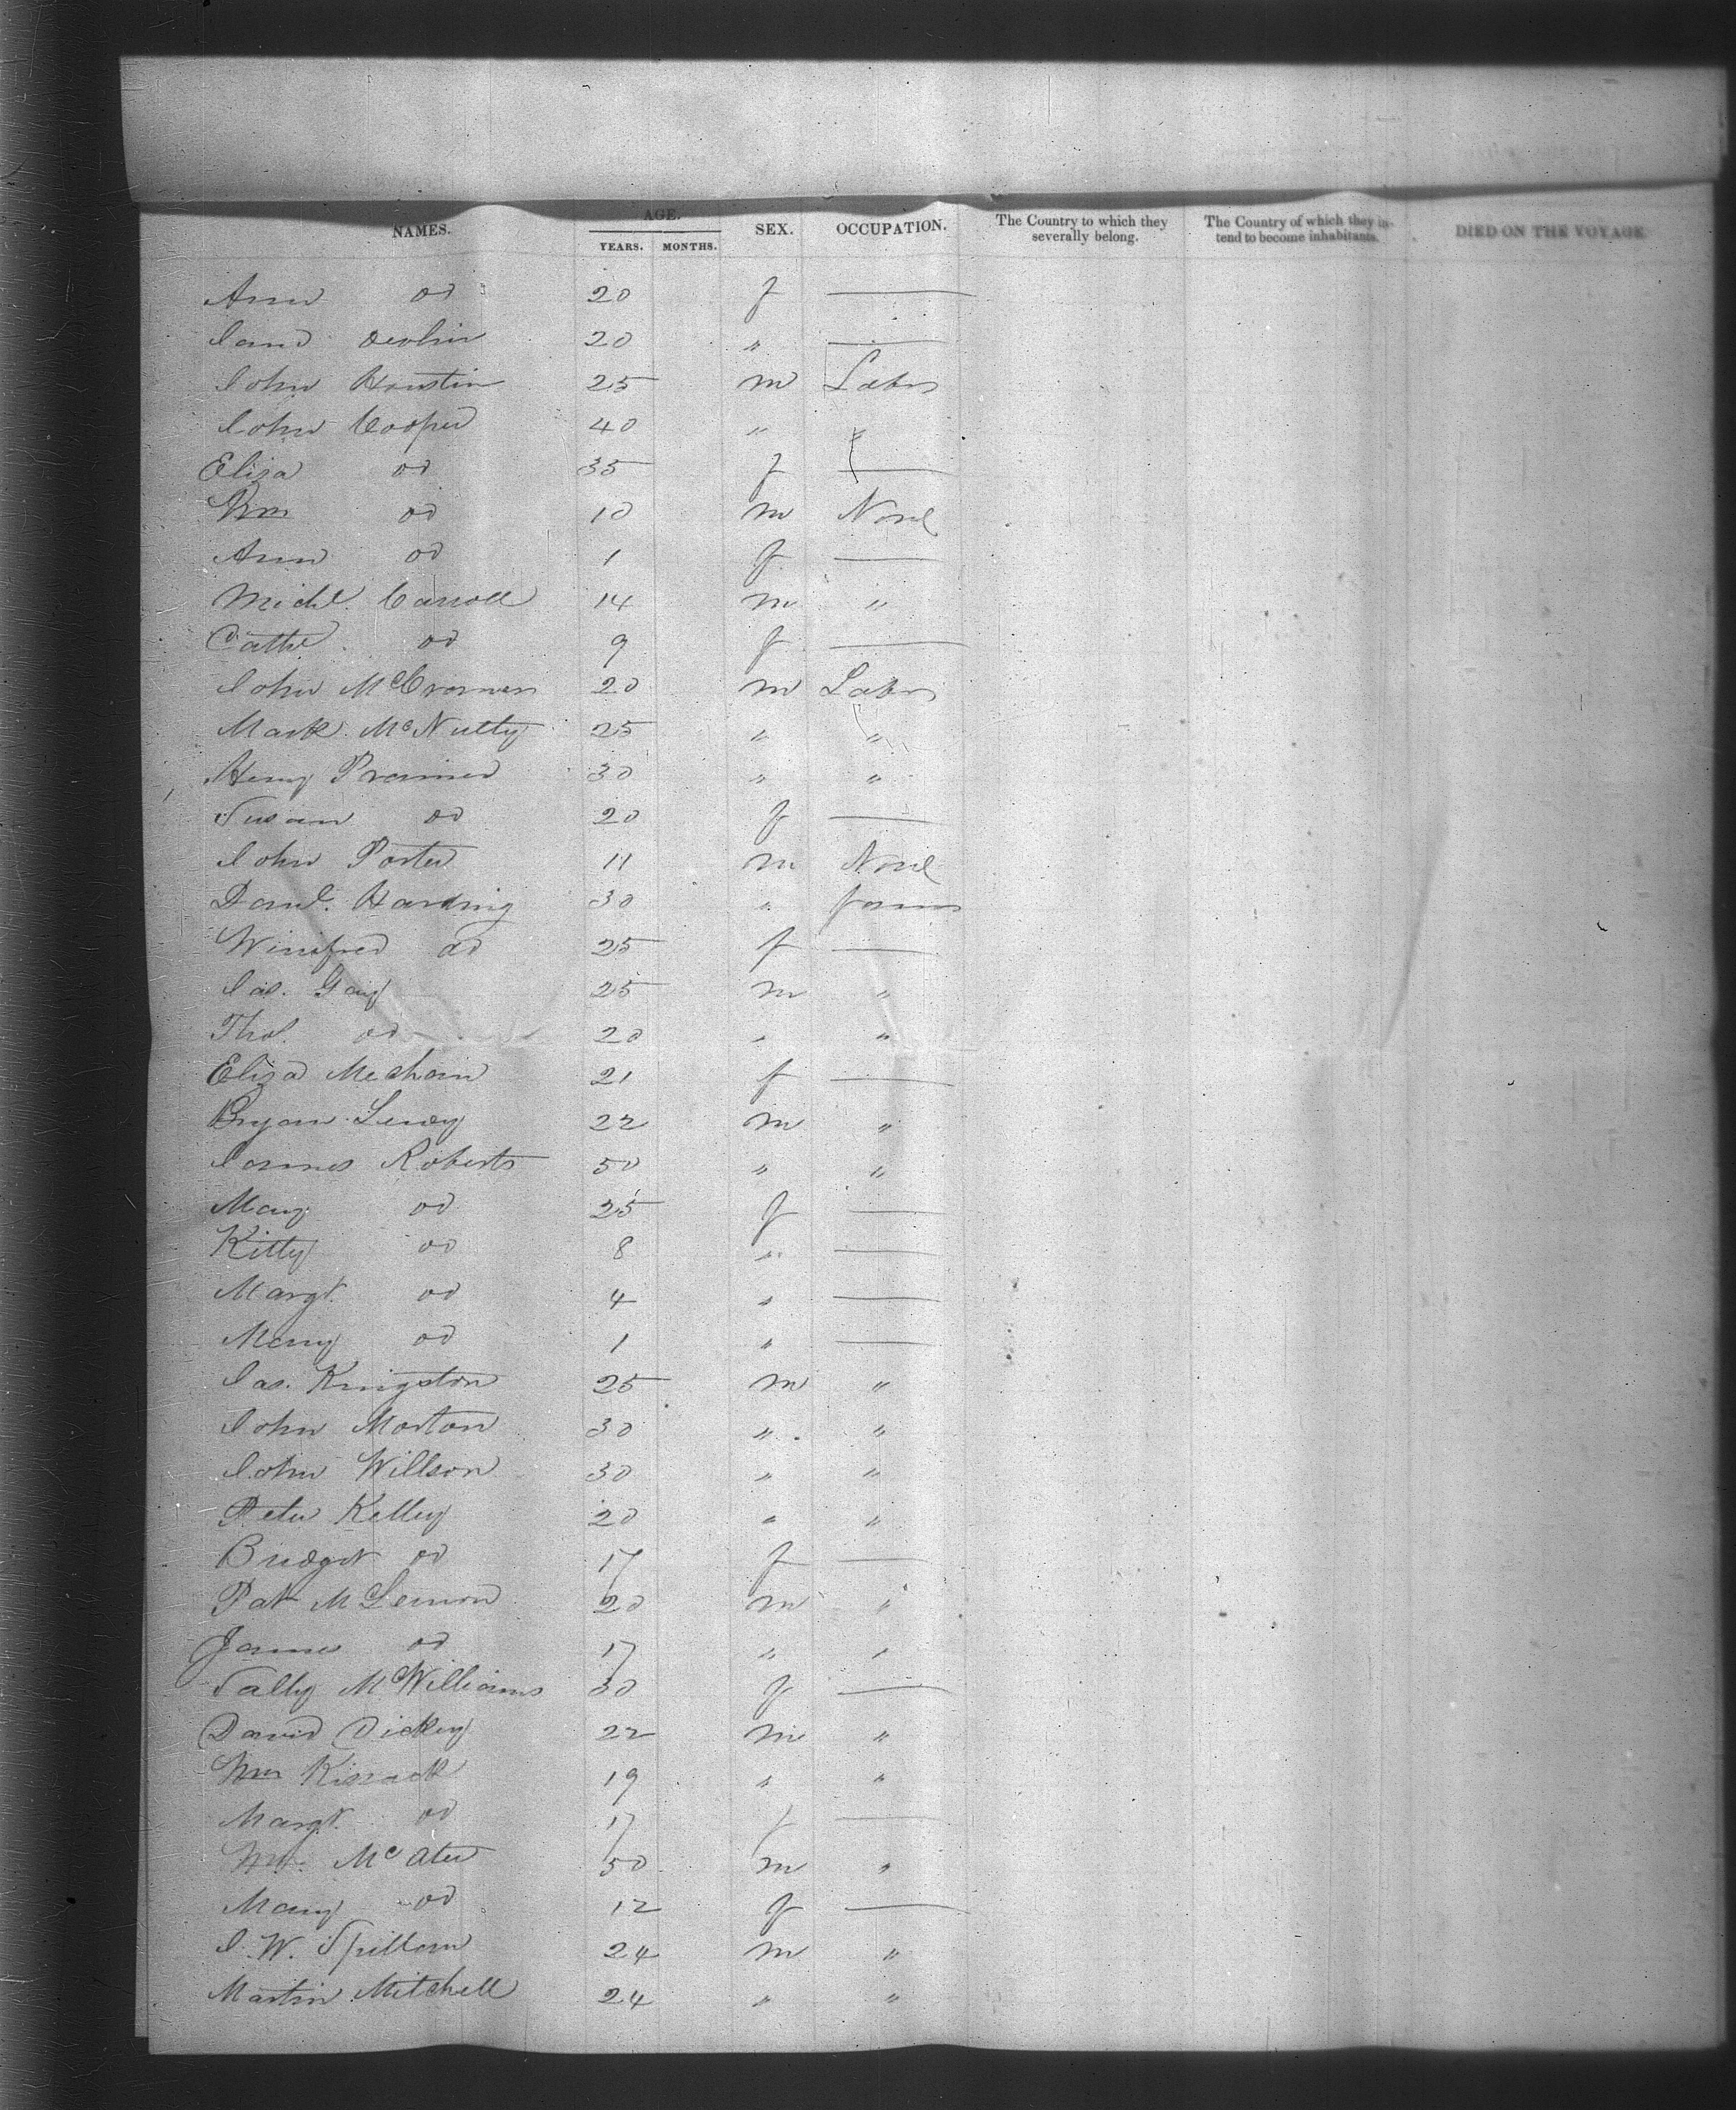 NAMES. AGE. YEARS. MONTHS. SEX. OCCUPATION. The Country to which they severally belong. The Country of which they intend to become inhabitants. DIED ON THE VOYAGE
Ann do 20 f —
Jane Devlin 20 " —
John Houstin 25 m Labr
John Cooper 40 " "
Eliza do 35 f —
Wm do 10 m None
Ann do 1 f —
Michl. Carroll 14 m "
Cathe do 9 f —
John 20 m Labr
Mark McNulty 25 " "
Henry 30 " "
Susan do 20 f —
John Porter 11 m None
Danl. Harding 30 " farmr
Winifred do 25 f —
Jas. Gay 25 m "
Thos. do 20 " "
Eliza Mechain 21 f —
Bryan 22 m "
James Roberts 50 " "
Mary do 25 f —
Kitty do 8 " —
Margt. do 4 " —
Mary do 1 " —
Jas. Kingston 25 m "
John Morton 30 " "
John Willson 30 " "
Peter Kelley 20 " "
Bridget do 17 f —
Pat McLernon 20 m "
James do 17 " "
Sally McWilliams 30 f —
David Dickey 22 m "
Wm Kissack 19 " "
Margt. do 17 f —
Wm. McAteer 50 m "
Mary do 12 f —
J. W. Spillam 24 m "
Martin Mitchell 24 " "